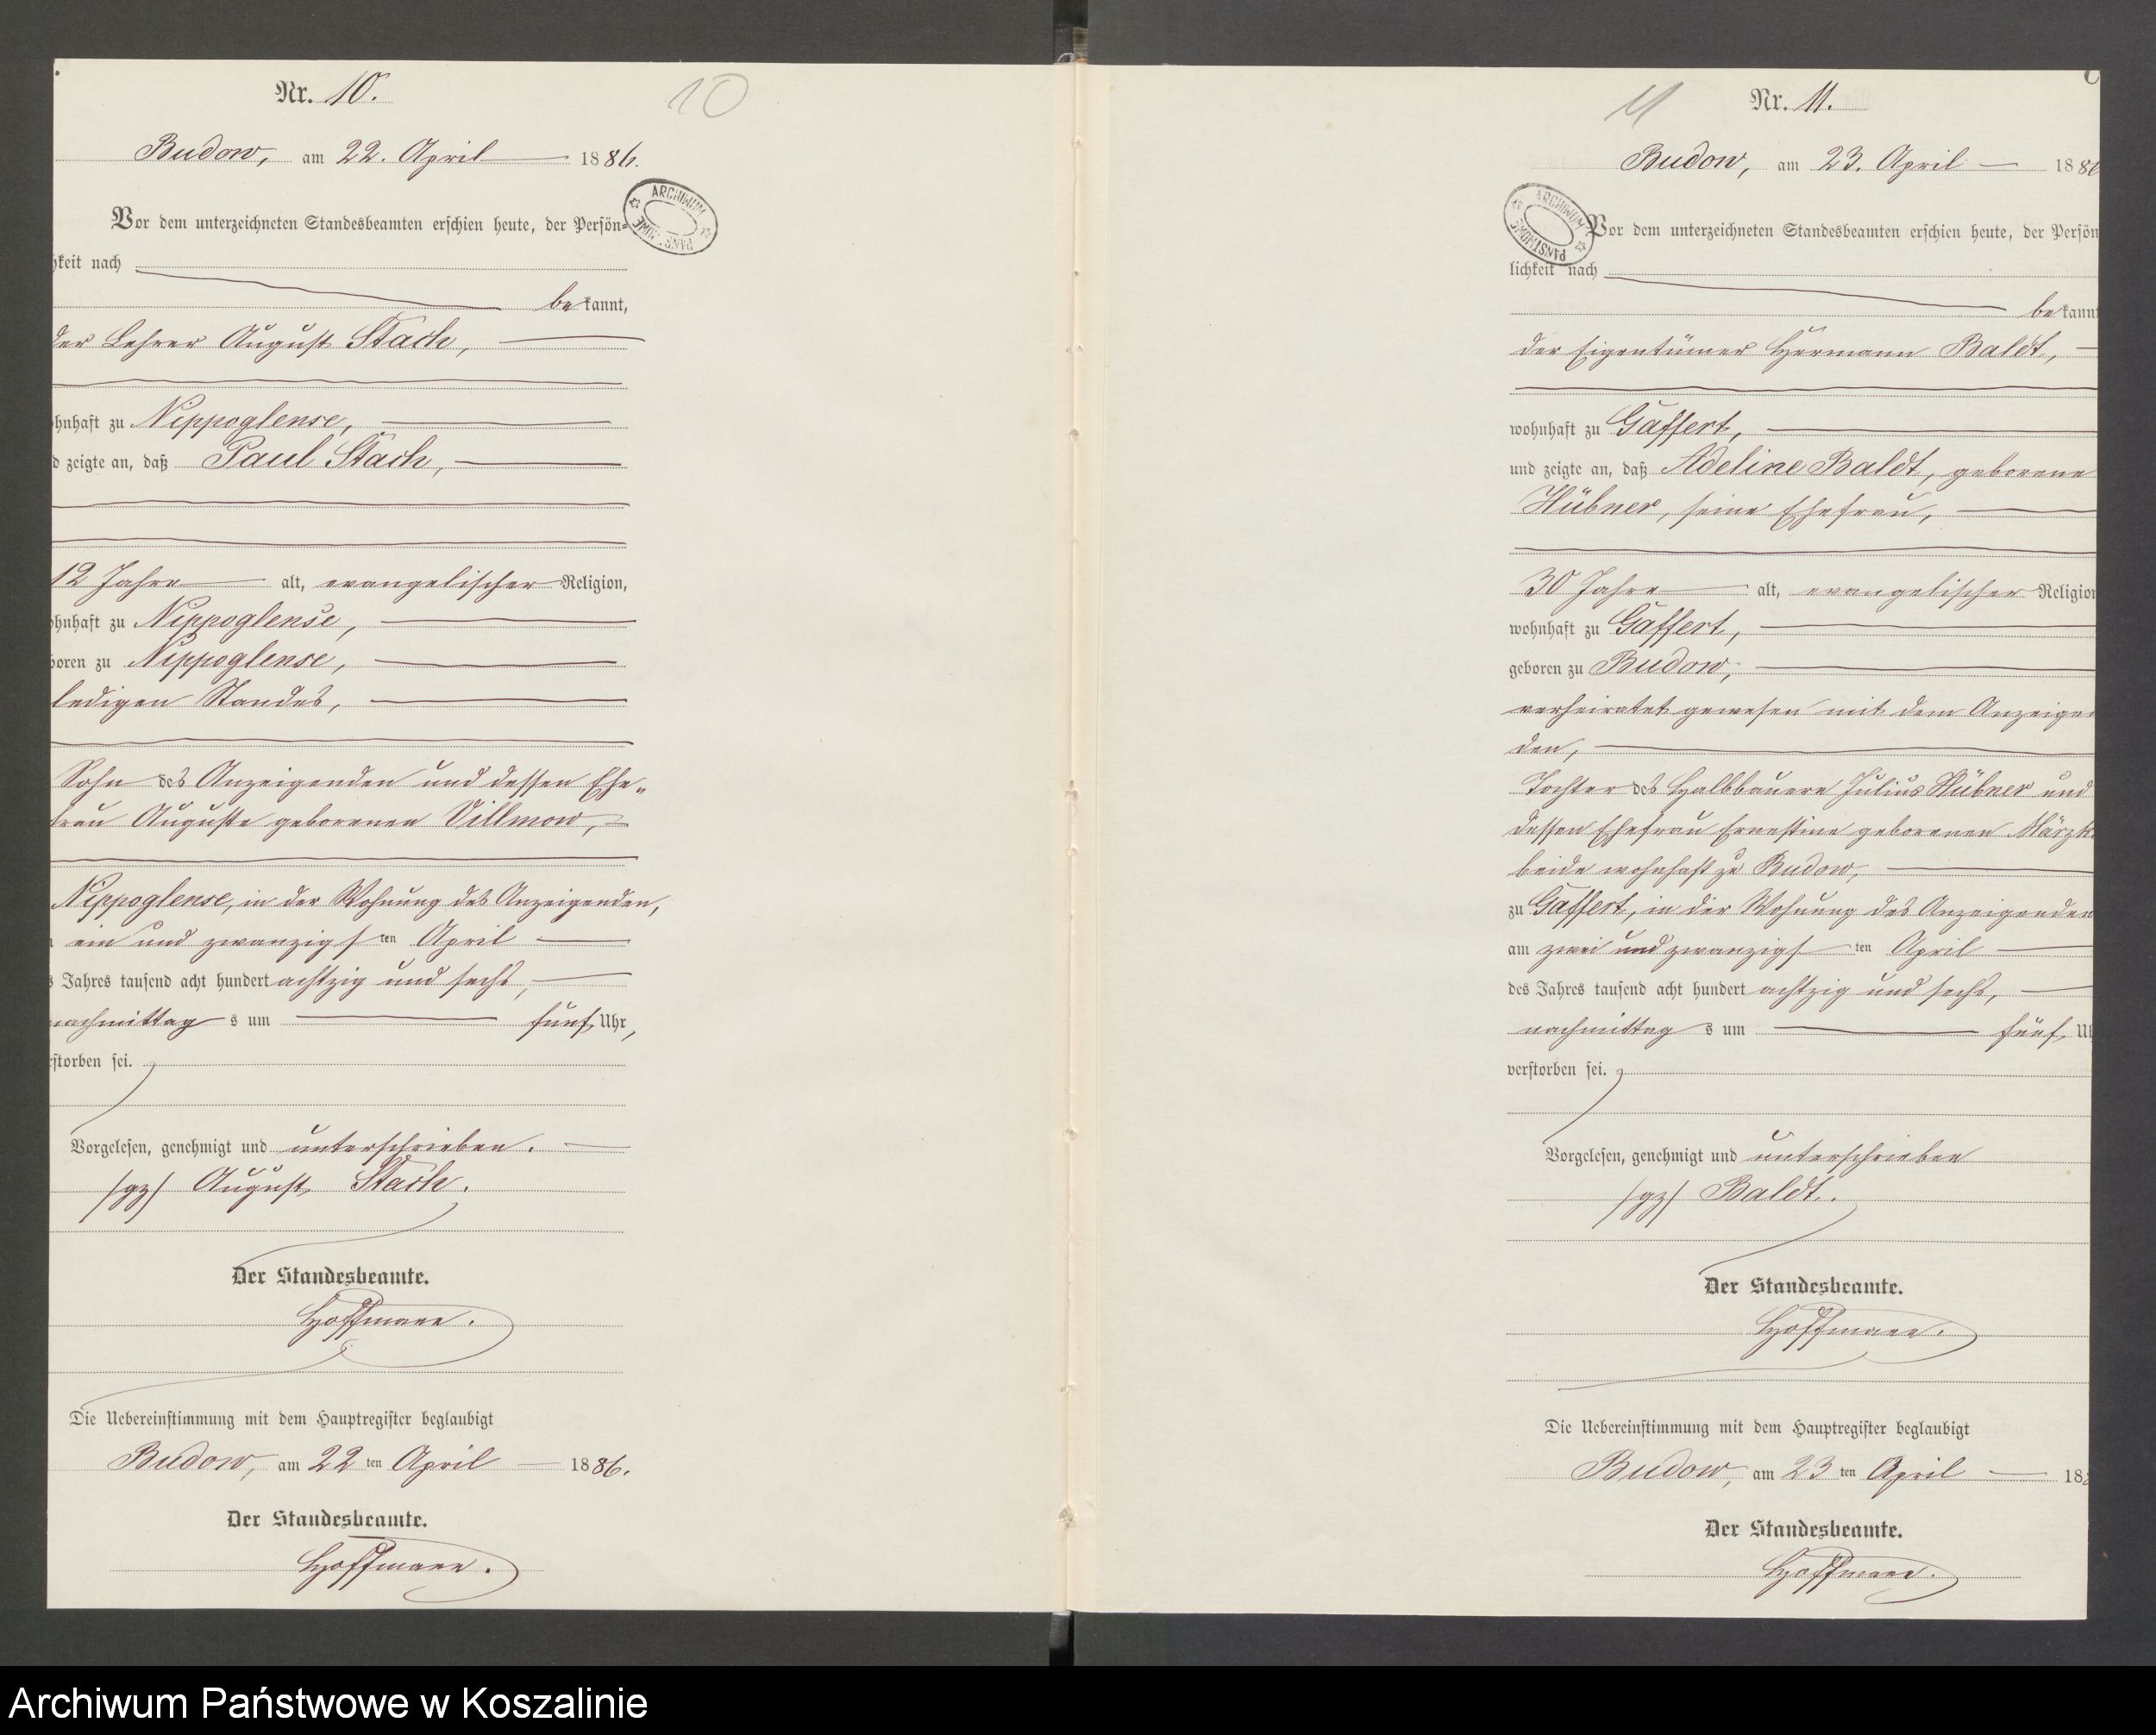 Nr. 10.
10
Budow, am 22. April 1886.
ARCHIWUM PAŃSTWOWE
Vor dem unterzeichneten Standesbeamten erschien heute, der Persön=
hkeit nach
bekannt,
der Lehrer August Stach,
ohnhaft zu Nippoglense,
d zeigte an, daß Paul Stach,
12 Jahre alt, evangelischer Religion,
ohnhaft zu Nippoglense,
boren zu Nippoglense,
ledigen Standes,
Sohn des Anzeigenden und dessen Ehe-
frau Auguste geborenen Villmow,
Nippoglense, in der Wohnung des Anzeigenden,
ein und zwanzigsten April
s Jahres tausend acht hundert achtzig und sechs,
nachmittags um fünf Uhr,
rstorben sei.
Vorgelesen, genehmigt und unterschrieben.
/gz/ August Stach.
Der Standesbeamte.
Hoffmann.
Die Uebereinstimmung mit dem Hauptregister beglaubigt
Budow, am 22ten April 1886.
Der Standesbeamte.
Hoffmann.
11
Nr. 11.
Budow, am 23. April 1886
ARCHIWUM PAŃSTWOWE
Vor dem unterzeichneten Standesbeamten erschien heute, der Persön
lichkeit nach
bekannt
der Eigentümer Hermann Baldt,
wohnhaft zu Gaffert,
und zeigte an, daß Adeline Baldt, geborene
Hübner, seine Ehefrau,
30 Jahre alt, evangelischer Religion
wohnhaft zu Gaffert,
geboren zu Budow,
verheiratet gewesen mit dem Anzeigen
den,
Tochter des Halbbauern Julius Hübner und
dessen Ehefrau Ernestine geborenen
beide wohnhaft zu Budow,
zu Gaffert, in der Wohnung des Anzeigenden
am zwei und zwanzigsten April
des Jahres tausend acht hundert achtzig und sechs,
nachmittags um fünf Uh
verstorben sei.
Vorgelesen, genehmigt und unterschrieben
/gz/ Baldt.
Der Standesbeamte.
Hoffmann.
Die Uebereinstimmung mit dem Hauptregister beglaubigt
Budow, am 23ten April 188
Der Standesbeamte.
Hoffmann.
Archiwum Państwowe w Koszalinie